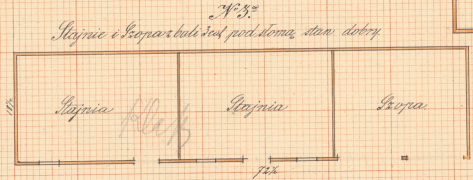 № 3º
Stajnie i Szopa z bali 3 cal pod słomą stan dobry.
Stajnia
Stajnia
Szopa
72½